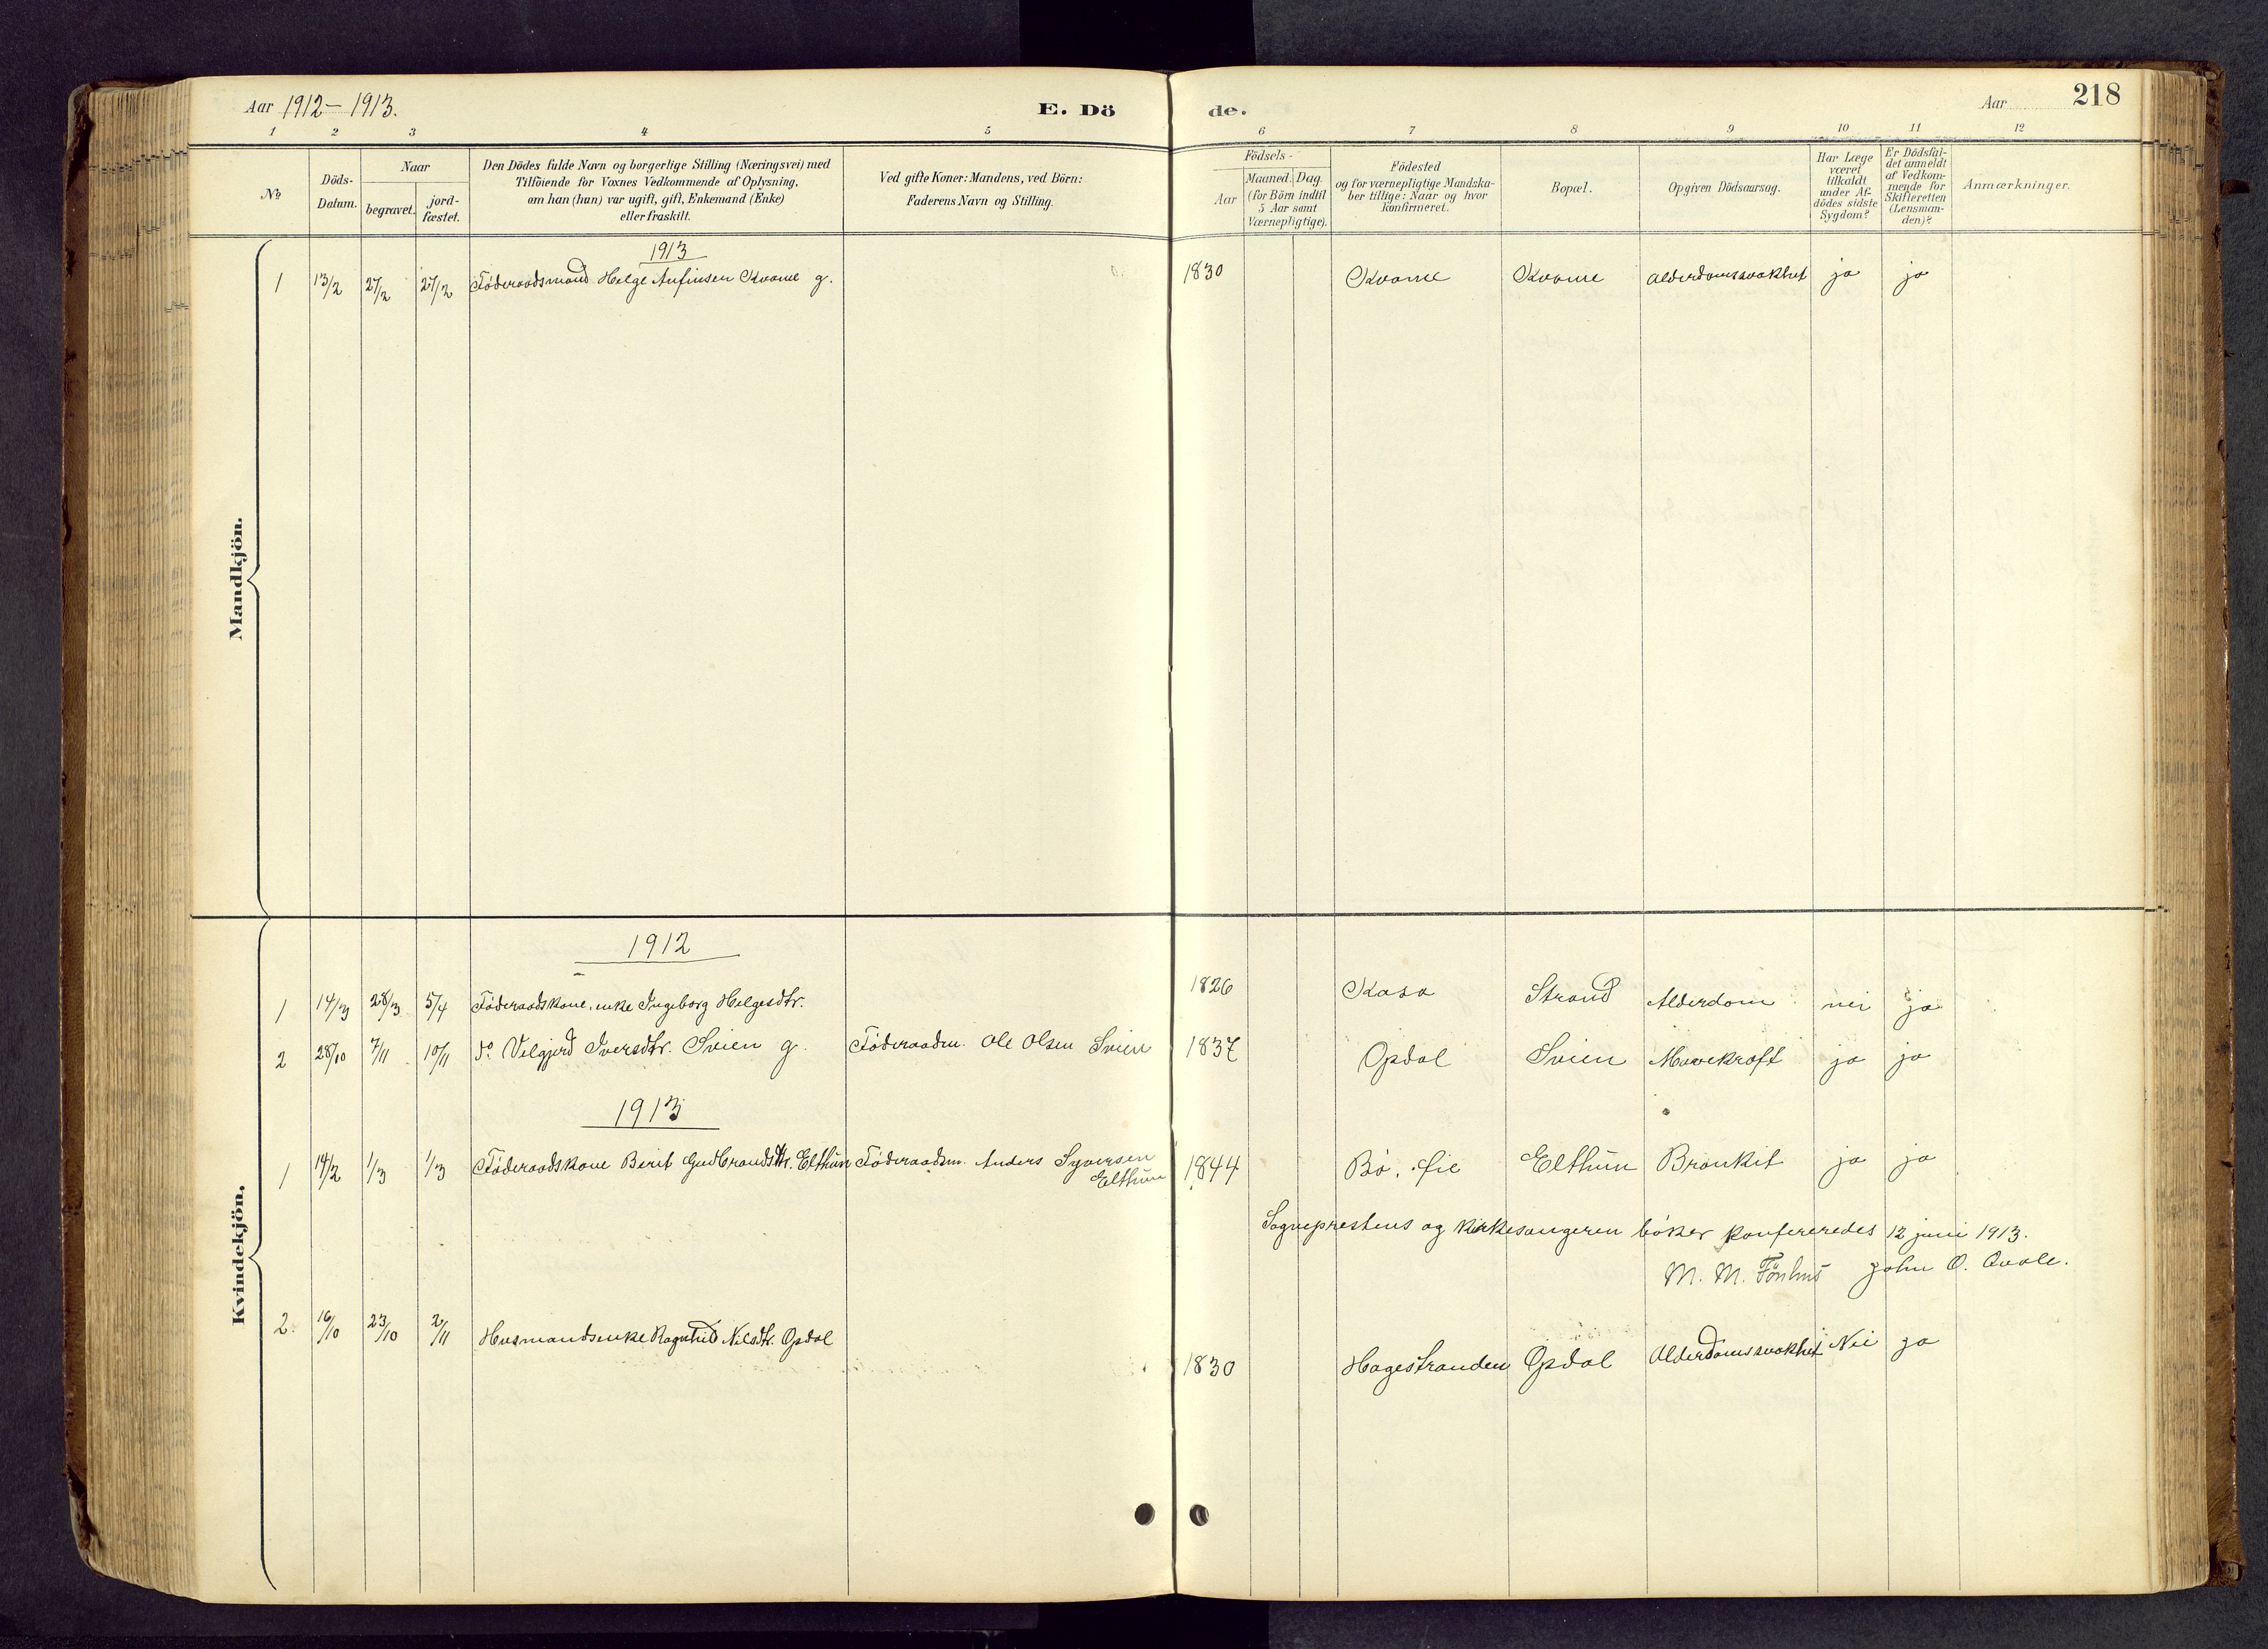 Aar 1912 – 1913. E. Dö de. Aar 218
1 2 3 4 5 6 7 8 9 10 11 12
No
Döds-
Datum.
Naar
begravet.
jord-
fæstet.
Den Dödes fulde Navn og borgerlige Stilling (Næringsvei) med
Tilföiende for Voxnes Vedkommende af Oplysning,
om han (hun) var ugift, gift, Enkemand (Enke)
eller fraskilt.
Ved gifte Koner: Mandens, ved Börn:
Faderens Navn og Stilling.
Födsels-
Aar
Maaned. Dag.
(for Börn indtil
5 Aar samt
Værnepligtige).
Födested
og for værnepligtige Mandska-
ber tillige: Naar og hvor
konfirmeret.
Bopæl.
Opgiven Dödsaarsag.
Har Læge
været
tilkaldt
under Af-
dödes sidste
Sygdom?
Er Dödsfal-
det anmeldt
af Vedkom-
mende for
Skifteretten
(Lensman-
den)?
Anmærkninger.
Mandkjön.
1913
1 13/2 27/2 27/2 Föderaadsmand Helge Anfinsen Kvame g. 1830 Kvame Kvame Alderdomssvakhet ja ja
Kvindekjön.
1912
1 14/3 28/3 5/4 Föderaadskone, enke Ingeborg Helgesdtr. 1826 Kasa Strand Alderdom nei ja
2 28/10 7/11 10/11 do Velgjerd Iversdtr. Svien g. Föderaadm. Ole Olsen Svien 1837 Opdal Svien Mavekræft ja ja
1913
1 14/2 1/3 1/3 Föderaadskone Berit Gudbrandsdtr. Elthun Föderaadsm. Anders Syversen 1844 Bö, Elthun Bronkit ja ja
Elthun
Sogneprestens og kirkesangeren böker konfereredes 12 juni 1913.
M. M. Fönhus John O. Qvale.
2. 16/10 23/10 2/11 Husmandsenke Ragnhild Nilsdtr. Opdal 1830 Hagestranden Opdal Alderdomssvakhet Nei ja